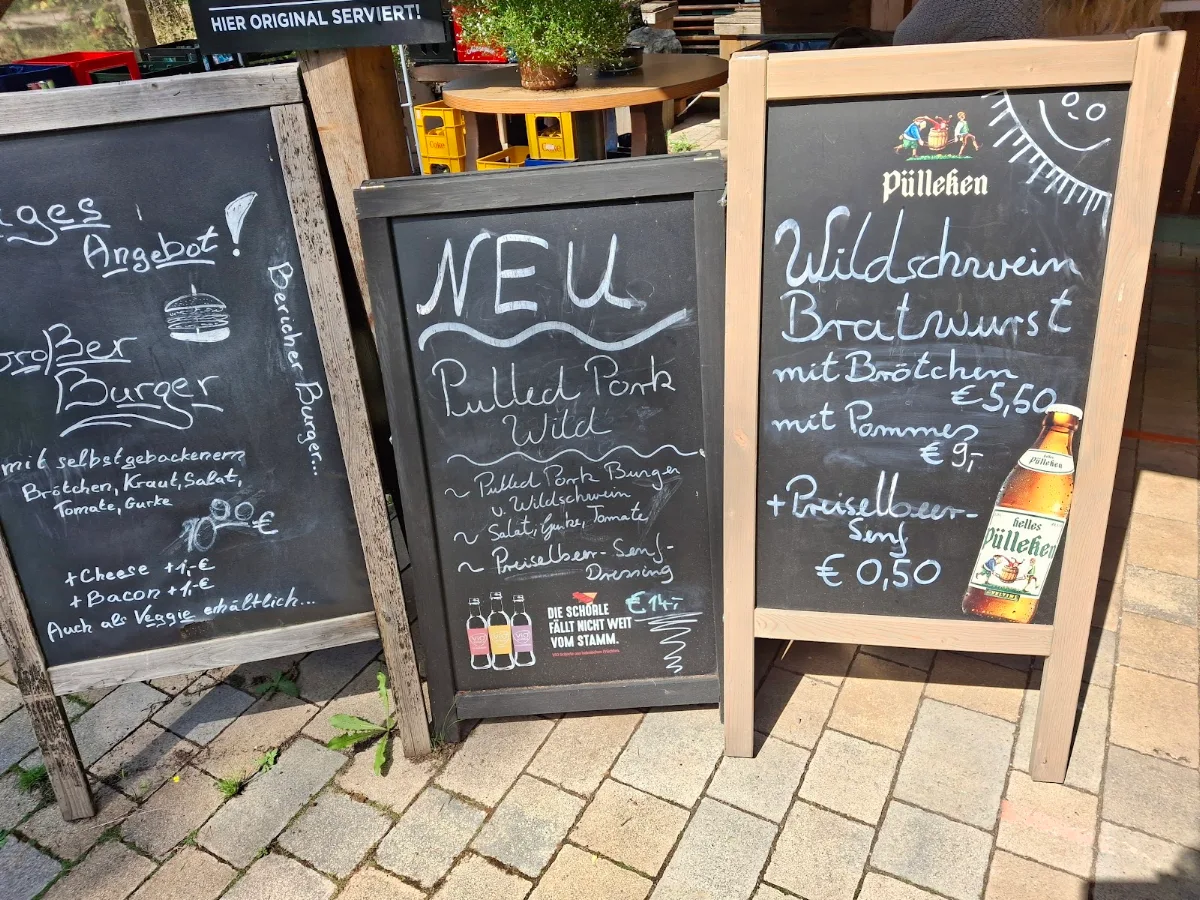 HIER ORIGINAL SERVIERT!
iges
Angebot!
großer
Burger
Bericher Burger...
mit selbstgebackenem
Brötchen, Kraut, Salat,
Tomate, Gurke
€
+Cheese +1,-€
+Bacon +1,-€
Auch als Veggie erhältlich...
NEU
Pulled Pork
Wild
~ Pulled Pork Burger
v. Wildschwein
~ Salat, Gurke, Tomate,
~ Preiselbeer-Senf-
Dressing
€14,-
DIE SCHORLE
FÄLLT NICHT WEIT
VOM STAMM.
Pülleken
Wildschwein
Bratwurst
mit Brötchen
€ 5,50
mit Pommes
€ 9,-
+ Preiselbeer-
Senf
€ 0,50
Pülleken
helles
Pülleken